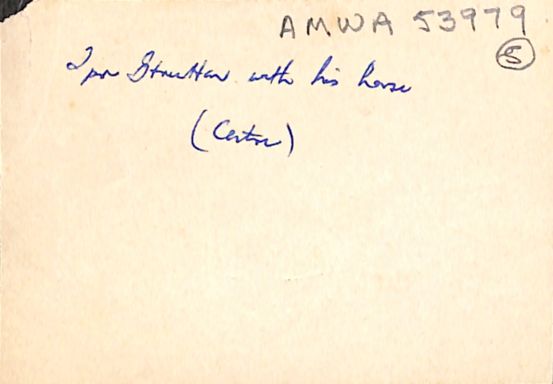 AMWA 53979
5
Ipor Strutton with his horse
(Centre)